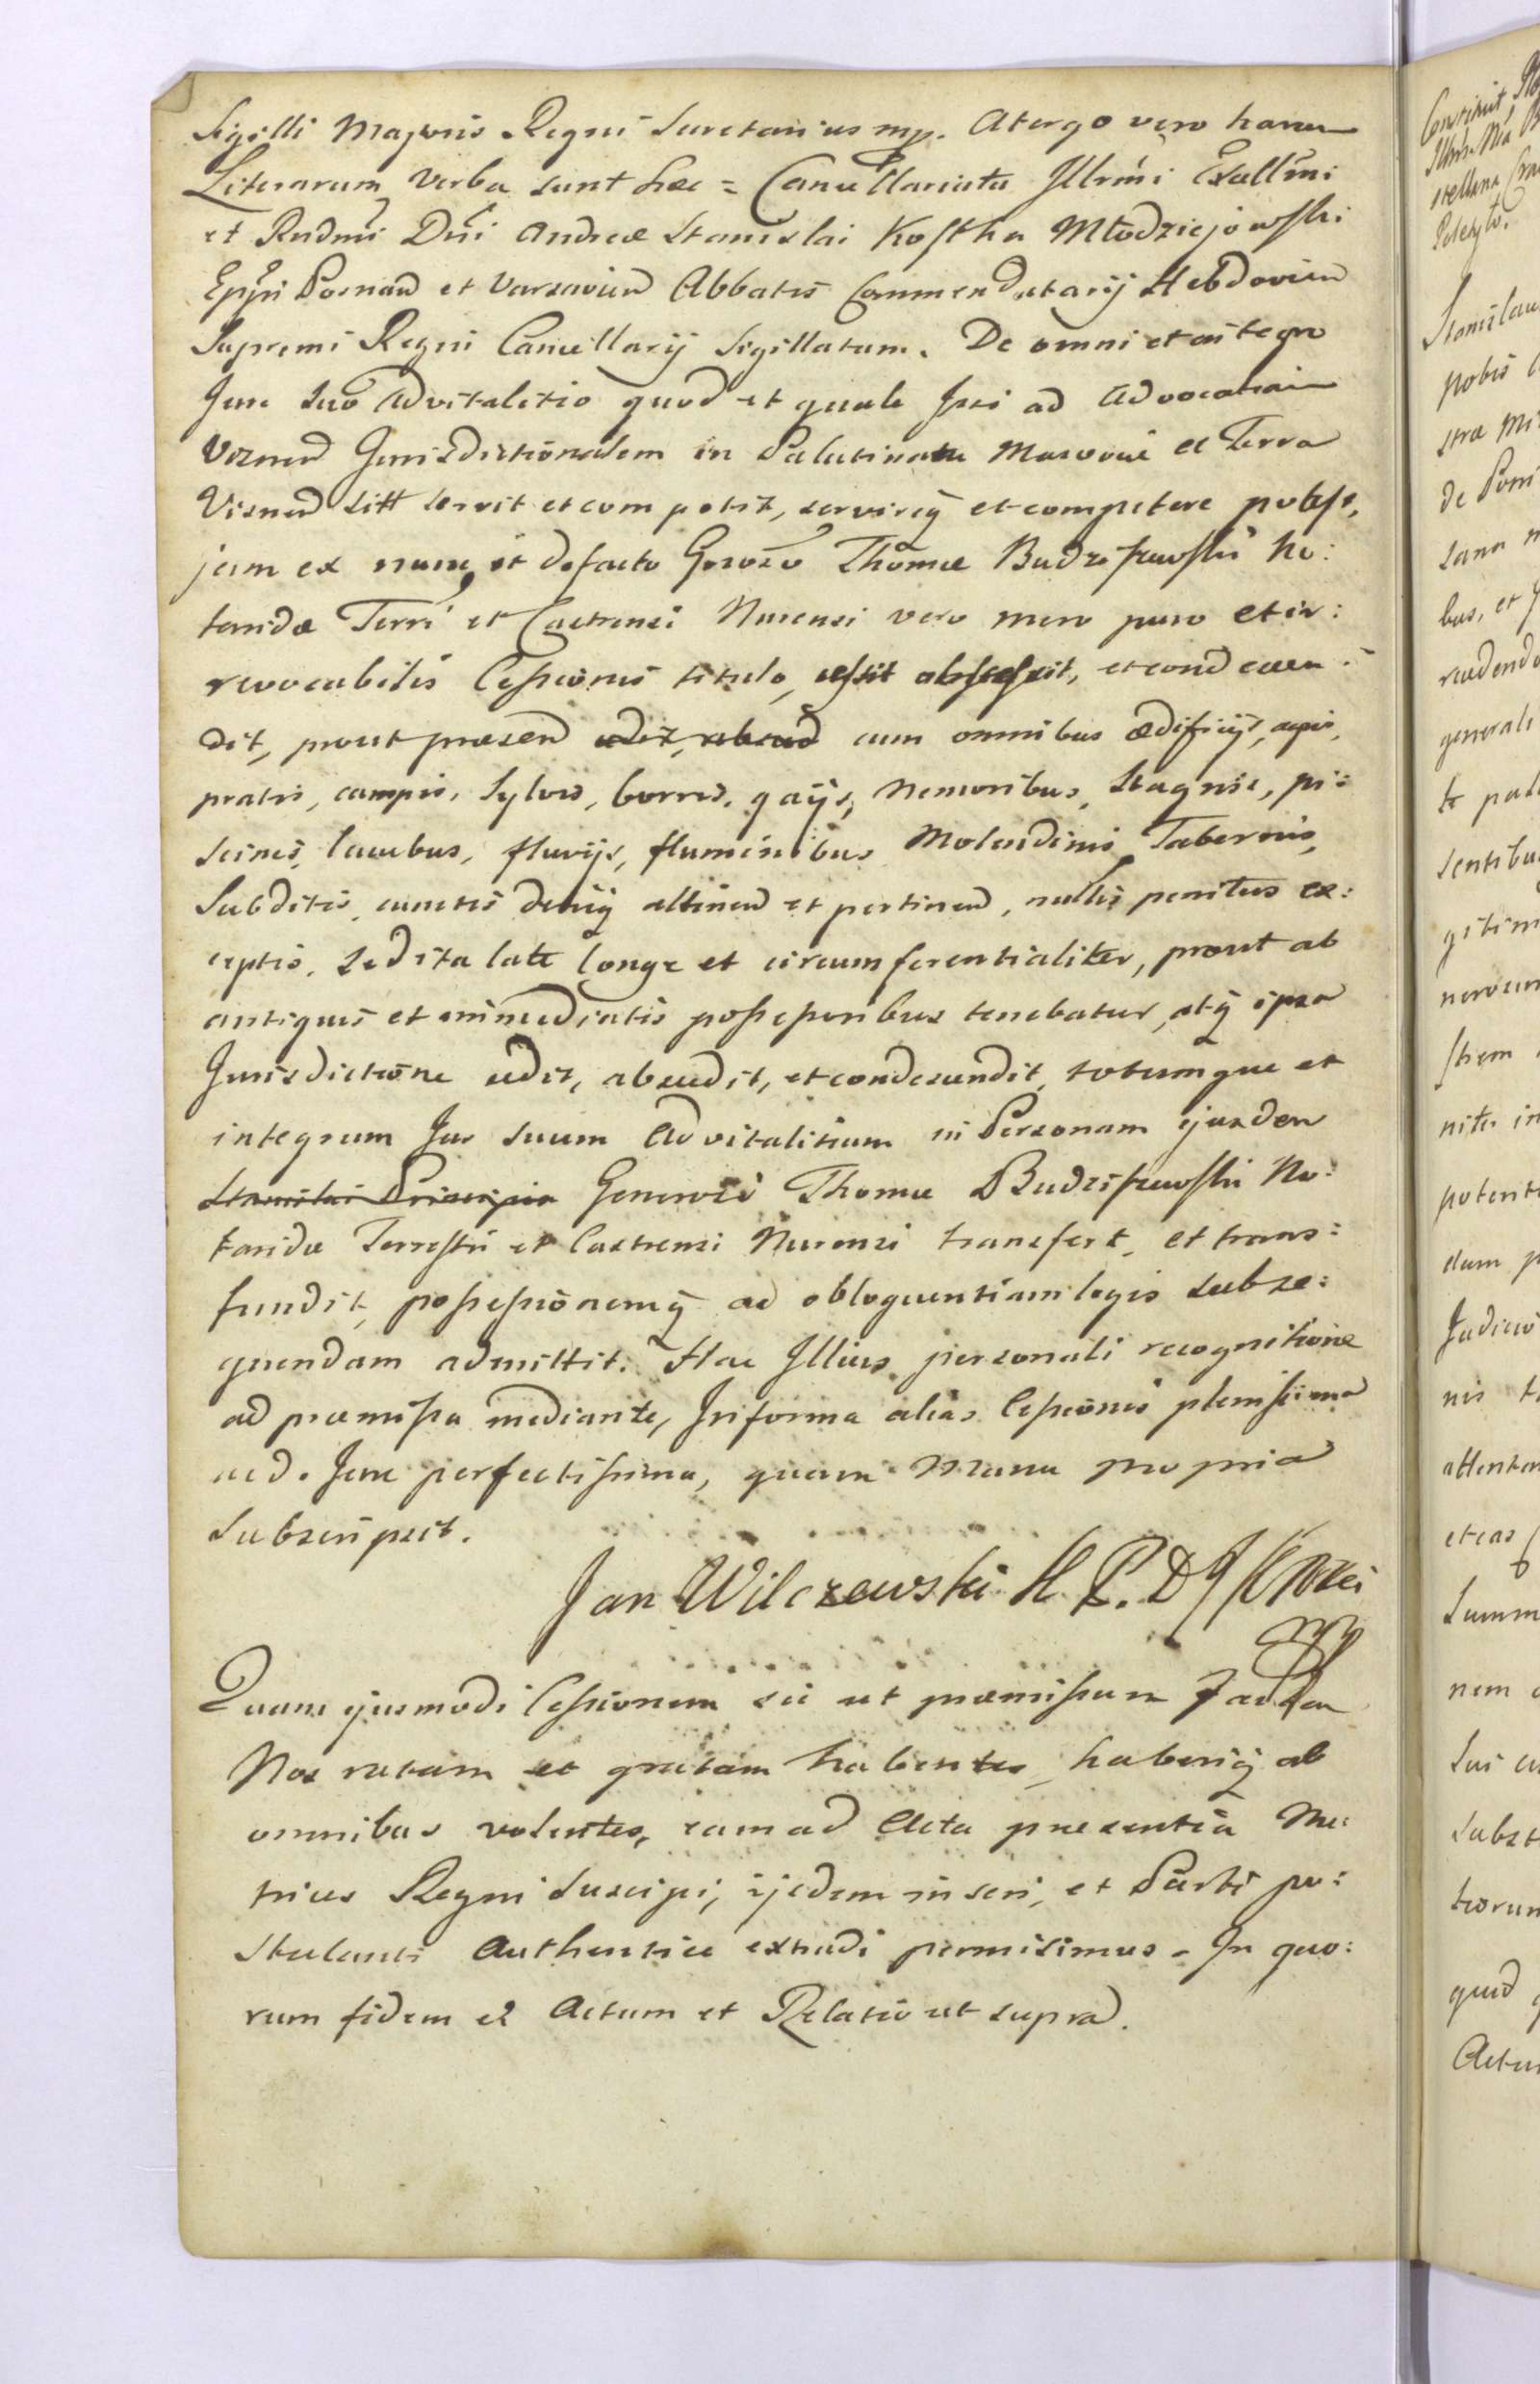 Sigilli Majoris Regni Secretarius mp. Atergo vero harum
Literarum verba sunt hæc = Cancellariatu Illrmi Excellmi
et Rndmi Dni Andreæ Stanislai Kostka Młodziejowski
Eppi Posnan et Varsavien Abbatis Commendatarij Hebdovien
Supremi Regni Cancellarij Sigillatum. De omni et integro
Jure suo Advitalitio quod et quale Ipsi ad Advocatiam
Viznen Jurisdictionalem in Palatinatu Masoviæ et Terra
Visnen sitt servit et competit, servireq et competere potest,
jam ex nunc et defacto Groso Thomæ Budziszewski No:
tarida Terri et Castrensi Nurensi vero mero puro et ir:
revocabilis Cessionis titulo, cessit abscessit, et condescen:
dit, prout præsen cedit, abced cum omnibus ædificijs, agris,
pratis, campis, sylvis, borris, gaijs, nemoribus, stagnis, pi:
scinis, lacubus, fluvijs, fluminibus Molendinis Tabernis,
Subditis, cunctis deniq attinen et pertinen, nullis penitus ex:
ceptis, sed ita late longe et circumferentialiter, prout ab
antiquis et immediatis possessoribus tenebatur, atq ipsa
Jurisdictione cedit, abscedit, et condescendit, totumque et
integrum Jus suum Advitalitium in Personam ejusdem
Stanislai Generosi Thomæ Budziszewski No:
tarida Terrestri et Castrensi Nurensi transfert, et trans:
fundit, possessionemq ad obloquentiam legis subse:
quendam admittit. Hac Illius personali recognitione
ad præmissa mediante, In forma alias Cessionis plenissima
ac d. Jure perfectissima, quam Manu propria
Subscripsit.
Jan Wilczewski
mp
Quam ejusmodi Cessionem sic ut præmissum
Nos ratam et gratam habentes, haberiq ab
omnibus volentes, eam ad Acta præsentia Me:
trices Regni suscipi, ijsdem inseri, et Parti po:
stulanti Authentice extradi permisimus. In quo:
rum fidem et Actum et Relatio ut supra.